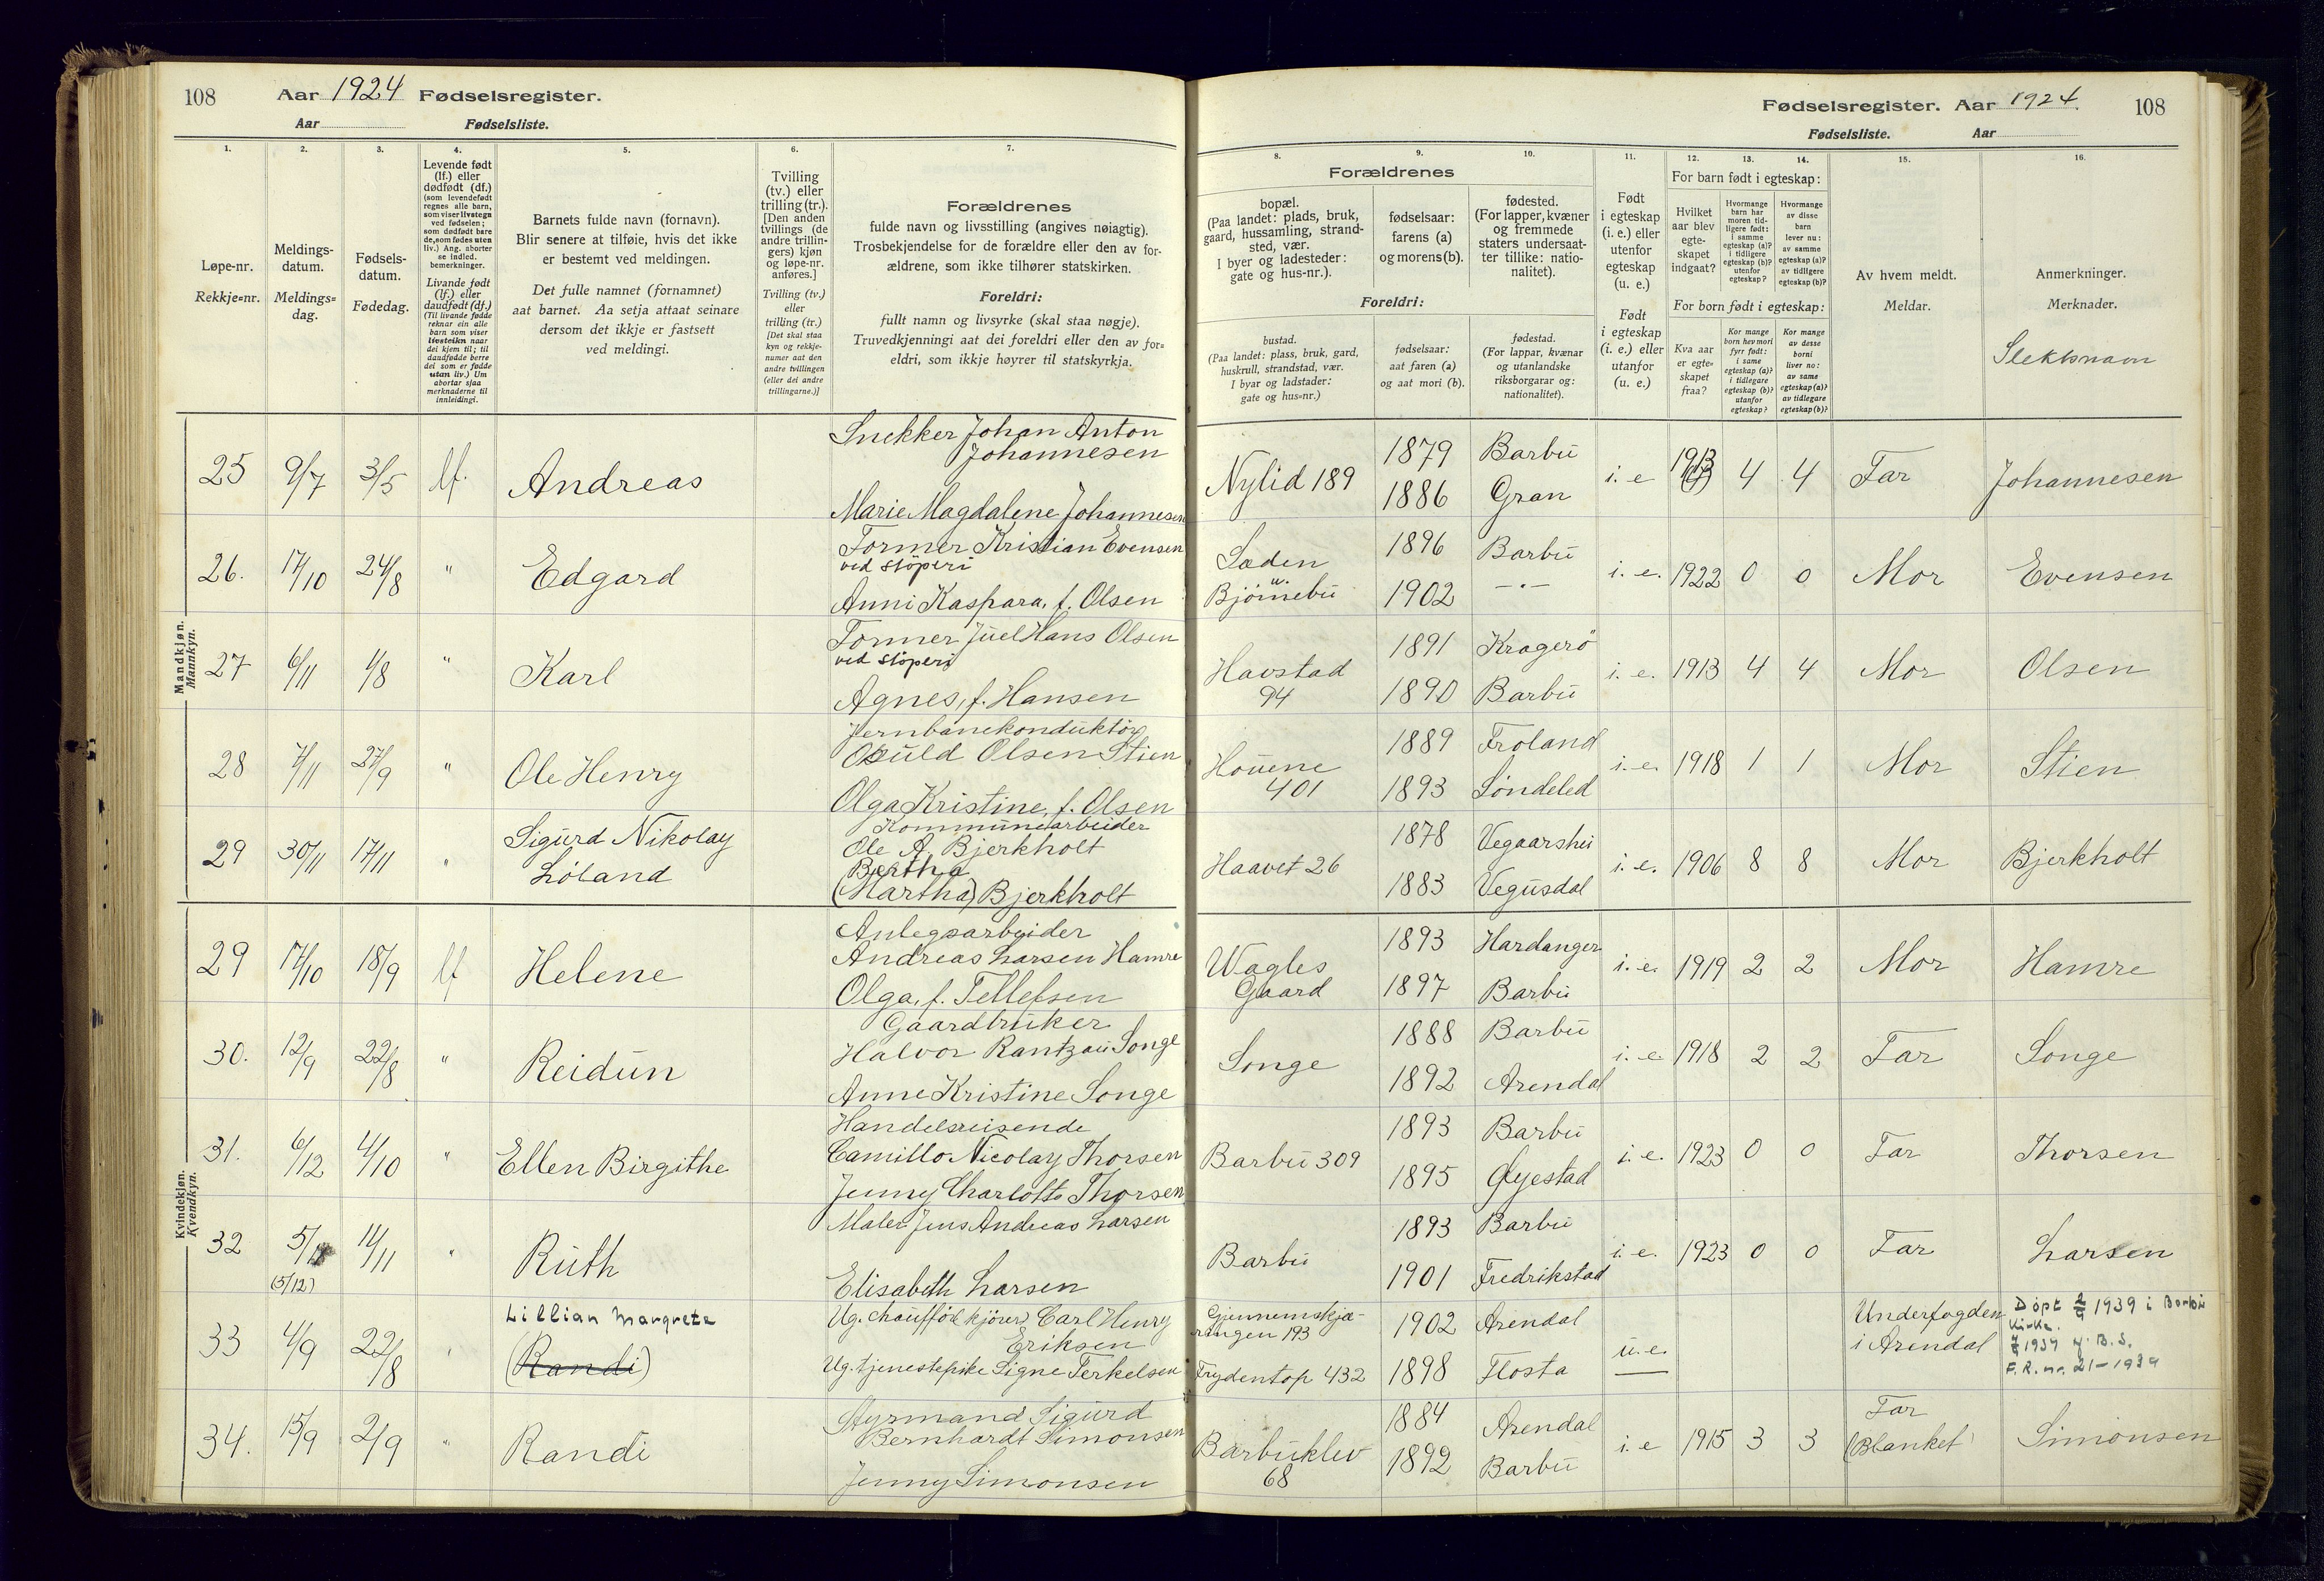 108
Aar 1924 Fødselsregister.
Aar Fødselsliste.
1.
Løpe-nr.
Rekkje=nr.
2.
Meldings-
datum.
Meldings=
dag.
3.
Fødsels-
datum.
Fødedag.
4.
Levende født
(lf.) eller
dødfødt (df.)
(som levendefødt
regnes alle barn,
som viser livstegn
ved fødselen;
som dødfødt bare
de, som fødes uten
liv.) Ang. aborter
se indled.
bemerkninger.
Livande født
(lf.) eller
daudfødt (df.)
(Til livande fødde
reknar ein alle
barn som viser
livsteikn naar
dei kjem til; til
daudfødde berre
dei som er fødde
utan liv.) Um
abortar sjaa
merknaderne til
innleidingi.
5.
Barnets fulde navn (fornavn).
Blir senere at tilføie, hvis det ikke
er bestemt ved meldingen.
Det fulle namnet (fornamnet)
aat barnet. Aa setja attaat seinare
dersom det ikkje er fastsett
ved meldingi.
6.
Tvilling
(tv.) eller
trilling (tr.).
[Den anden
tvillings (de
andre trillin-
gers) kjøn
og løpe-nr.
anføres.]
Tvilling (tv.)
eller
trilling (tr.)
[Det skal staa
kyn og rekkje-
numer aat den
andre tvillingen
(eller dei andre
trillingarne.)]
7.
Forældrenes
fulde navn og livsstilling (angives nøiagtig).
Trosbekjendelse for de forældre eller den av for-
ældrene, som ikke tilhører statskirken.
Foreldri:
fullt namn og livsyrke (skal staa nøgje).
Truvedkjenningi aat dei foreldri eller den av for=
eldri, som ikkje høyrer til statskyrkja.
Mandkjøn.
Mannkyn.
25 9/7 3/5 lf. Andreas
Snekker Johan Anton
Johannesen
Marie Magdalene Johannesen
26. 17/10 24/8 " Edgard
Former Kristian Evensen
ved støperi
Anni Kaspara, f. Olsen
27 6/11 1/8 " Karl
Former Juel Hans Olsen
ved støperi
Agnes, f. Hansen
28 7/11 27/9 " Ole Henry
Jernbanekonduktør
Osuld Olsen Stien
Olga Kristine, f. Olsen
29 30/11 17/11 " Sigurd Nikolay
Löland
Kommunearbeider
Ole A. Bjerkholt
Bertha
(Martha) Bjerkholt
Kvindekjøn.
Kvendkyn.
29 17/10 18/9 lf Helene
Anlegsarbeider
Andreas Larsen Hamre
Olga, f. Tellefsen
30. 12/9 22/8 " Reidun
Gaardbruker
Halvor Rantzau Songe
Anne Kristine Songe
31. 6/12 4/10 " Ellen Birgithe
Handelsreisende
Camillo Nicolay Thorsen
Jenny Charlotte Thorsen
32 5/12 (5/12) 14/11 " Ruth
Maler Jens Andreas Larsen
Elisabeth Larsen
33 4/9 22/8 " Lillian Margrete
(Randi)
Ug. chauffør (kjører) Carl Henry
Eriksen
Ug. tjenestepike Signe Terkelsen
34. 15/9 2/9 " Randi
Styrmand Sigurd
Bernhardt Simonsen
Jenny Simonsen
Fødselsregister. Aar 1924. 108
Fødselsliste. Aar
8.
Forældrenes
bopæl.
(Paa landet: plads, bruk,
gaard, hussamling, strand-
sted, vær.
I byer og ladesteder:
gate og hus-nr.).
Foreldri:
bustad.
(Paa landet: plass, bruk, gard,
huskrull, strandstad, vær.
I byar og ladstader:
gate og hus=nr.)
9.
fødselsaar:
farens (a)
og morens (b).
fødselsaar:
aat faren (a)
og aat mori (b).
10.
fødested.
(For lapper, kvæner
og fremmede
staters undersaat-
ter tillike: natio-
nalitet).
fødestad.
(For lappar, kvænar
og utanlandske
riksborgarar og:
nationalitet).
11.
Født
i egteskap
(i. e.) eller
utenfor
egteskap
(u. e.)
Født
i egteskap
(i. e.) eller
utanfor
(u. e.)
12.
For barn født i egteskap:
Hvilket
aar blev
egte-
skapet
indgaat?
For born født i egteskap:
Kva aar
er egte-
skapet
fraa?
13.
Hvormange
barn har
moren tid-
ligere født:
i samme
egteskap (a)?
i tidligere
egteskap (b)?
utenfor
egteskap?
Kor mange
born hev mori
fyrr født:
i same
egteskap (a)?
i tidlegare
egteskap (b)?
utanfor
egteskap?
14.
Hvormange
av disse
barn
lever nu:
av samme
egteskap (a)?
av tidligere
egteskap (b)?
Kor mange
av desse
borni
liver no:
av same
egteskap (a)?
av tidlegare
egteskap (b)?
15.
Av hvem meldt.
Meldar.
16.
Anmerkninger.
Merknader.
Slektsnavn
Nylid 189 1879 Barbu i. e 1913 4 4 Far Johannesen
1886 Gran
Laden 1896 Barbu i. e. 1922 0 0 Mor Evensen
u.
Bjørnebu 1902 - " -
Havstad 1891 Kragerö i. e. 1913 4 4 Mor Olsen
94 1890 Barbu
Houene 1889 Froland i. e. 1918 1 1 Mor Stien
401 1893 Søndeled
Haavet 26 1878 Vegaarshei i. e. 1906 8 8 Mor Bjerkholt
1883 Vegusdal
Wagles 1893 Hardanger i. e. 1919 2 2 Mor Hamre
Gaard 1897 Barbu
Songe 1888 Barbu i. e. 1918 2 2 Far Songe
1892 Arendal
Barbu 309 1893 Barbu i. e. 1923 0 0 Far Thorsen
1895 Øyestad
Barbu 1893 Barbu i. e. 1923 0 0 Far Larsen
1901 Fredrikstad
Gjennemskjæ-
ringen 193 1902 Arendal u. e. Underfogden
i Arendal
Frydentop 432 1898 Flosta
Døpt 2/4 1939 i Barbu
Kirke.
F.R. nr. 21-1939
Barbuklev 1884 Arendal i. e 1915 3 3 Far Simonsen
68 1892 Barbu (Blanket)